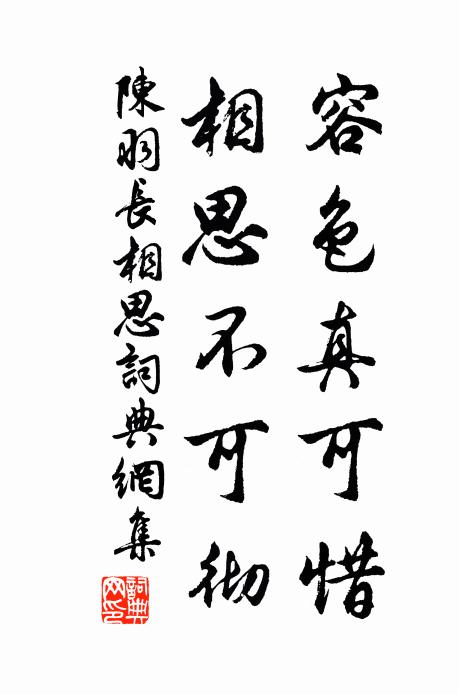 容色真可惜
相思不可彻
陳羽長相思詞典網集
詞典
网印